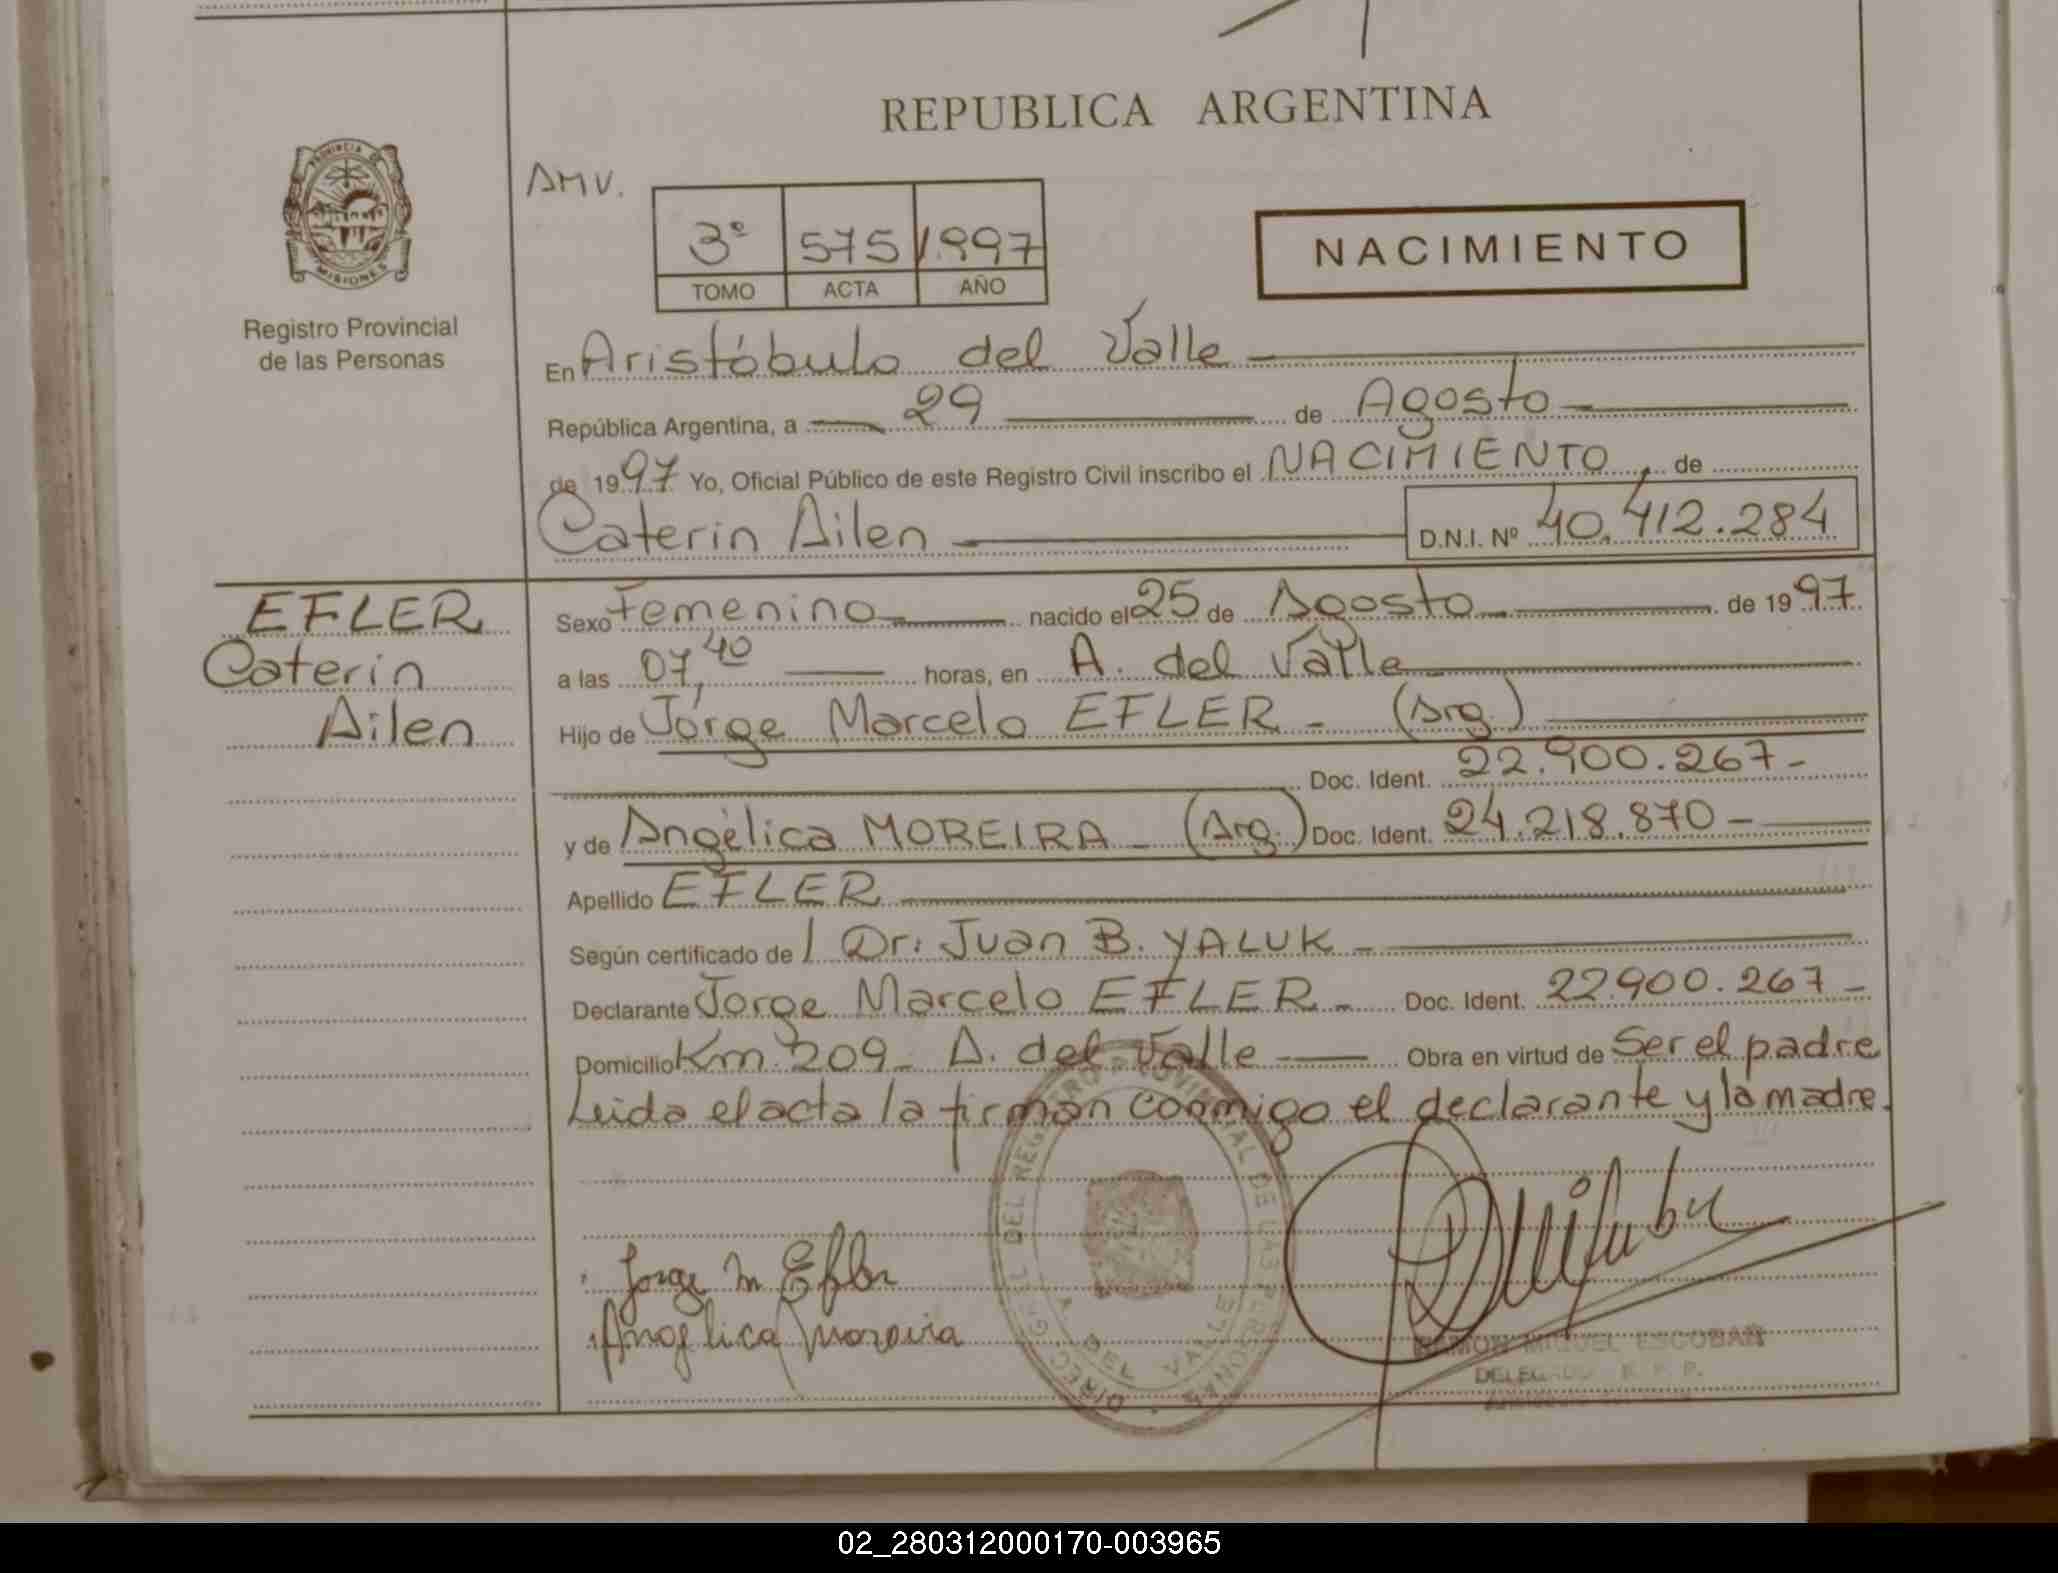 REPUBLICA ARGENTINA
PROVINCIA DE
MISIONES
Registro Provincial
de las Personas
AMV.
3º 575 1.997
TOMO ACTA AÑO
NACIMIENTO
En Aristóbulo del Valle
República Argentina, a 29 de Agosto
de 1997 Yo, Oficial Público de este Registro Civil inscribo el NACIMIENTO, de
Caterin Ailen D.N.I. Nº 40.412.284
EFLER
Caterin
Ailen
Sexo Femenino nacido el 25 de Agosto de 1997
a las 07,40 horas, en A. del Valle
Hijo de Jorge Marcelo EFLER - (Arg.)
Doc. Ident. 22.900.267-
y de Angélica MOREIRA - (Arg.) Doc. Ident. 24.218.870-
Apellido EFLER
Según certificado de / Dr. Juan B. YALUK -
Declarante Jorge Marcelo EFLER - Doc. Ident. 22.900.267-
Domicilio Km. 209 - A. del Valle Obra en virtud de Ser el padre
Leida el acta la firman conmigo el declarante y la madre.
Jorge M Efler
Angelica Moreira
DIREC. GRAL DEL REGISTRO PROVINCIAL DE LAS PERSONAS
A. DEL VALLE
RAMON MIGUEL ESCOBAR
DELEGADO R. P. P.
02_280312000170-003965